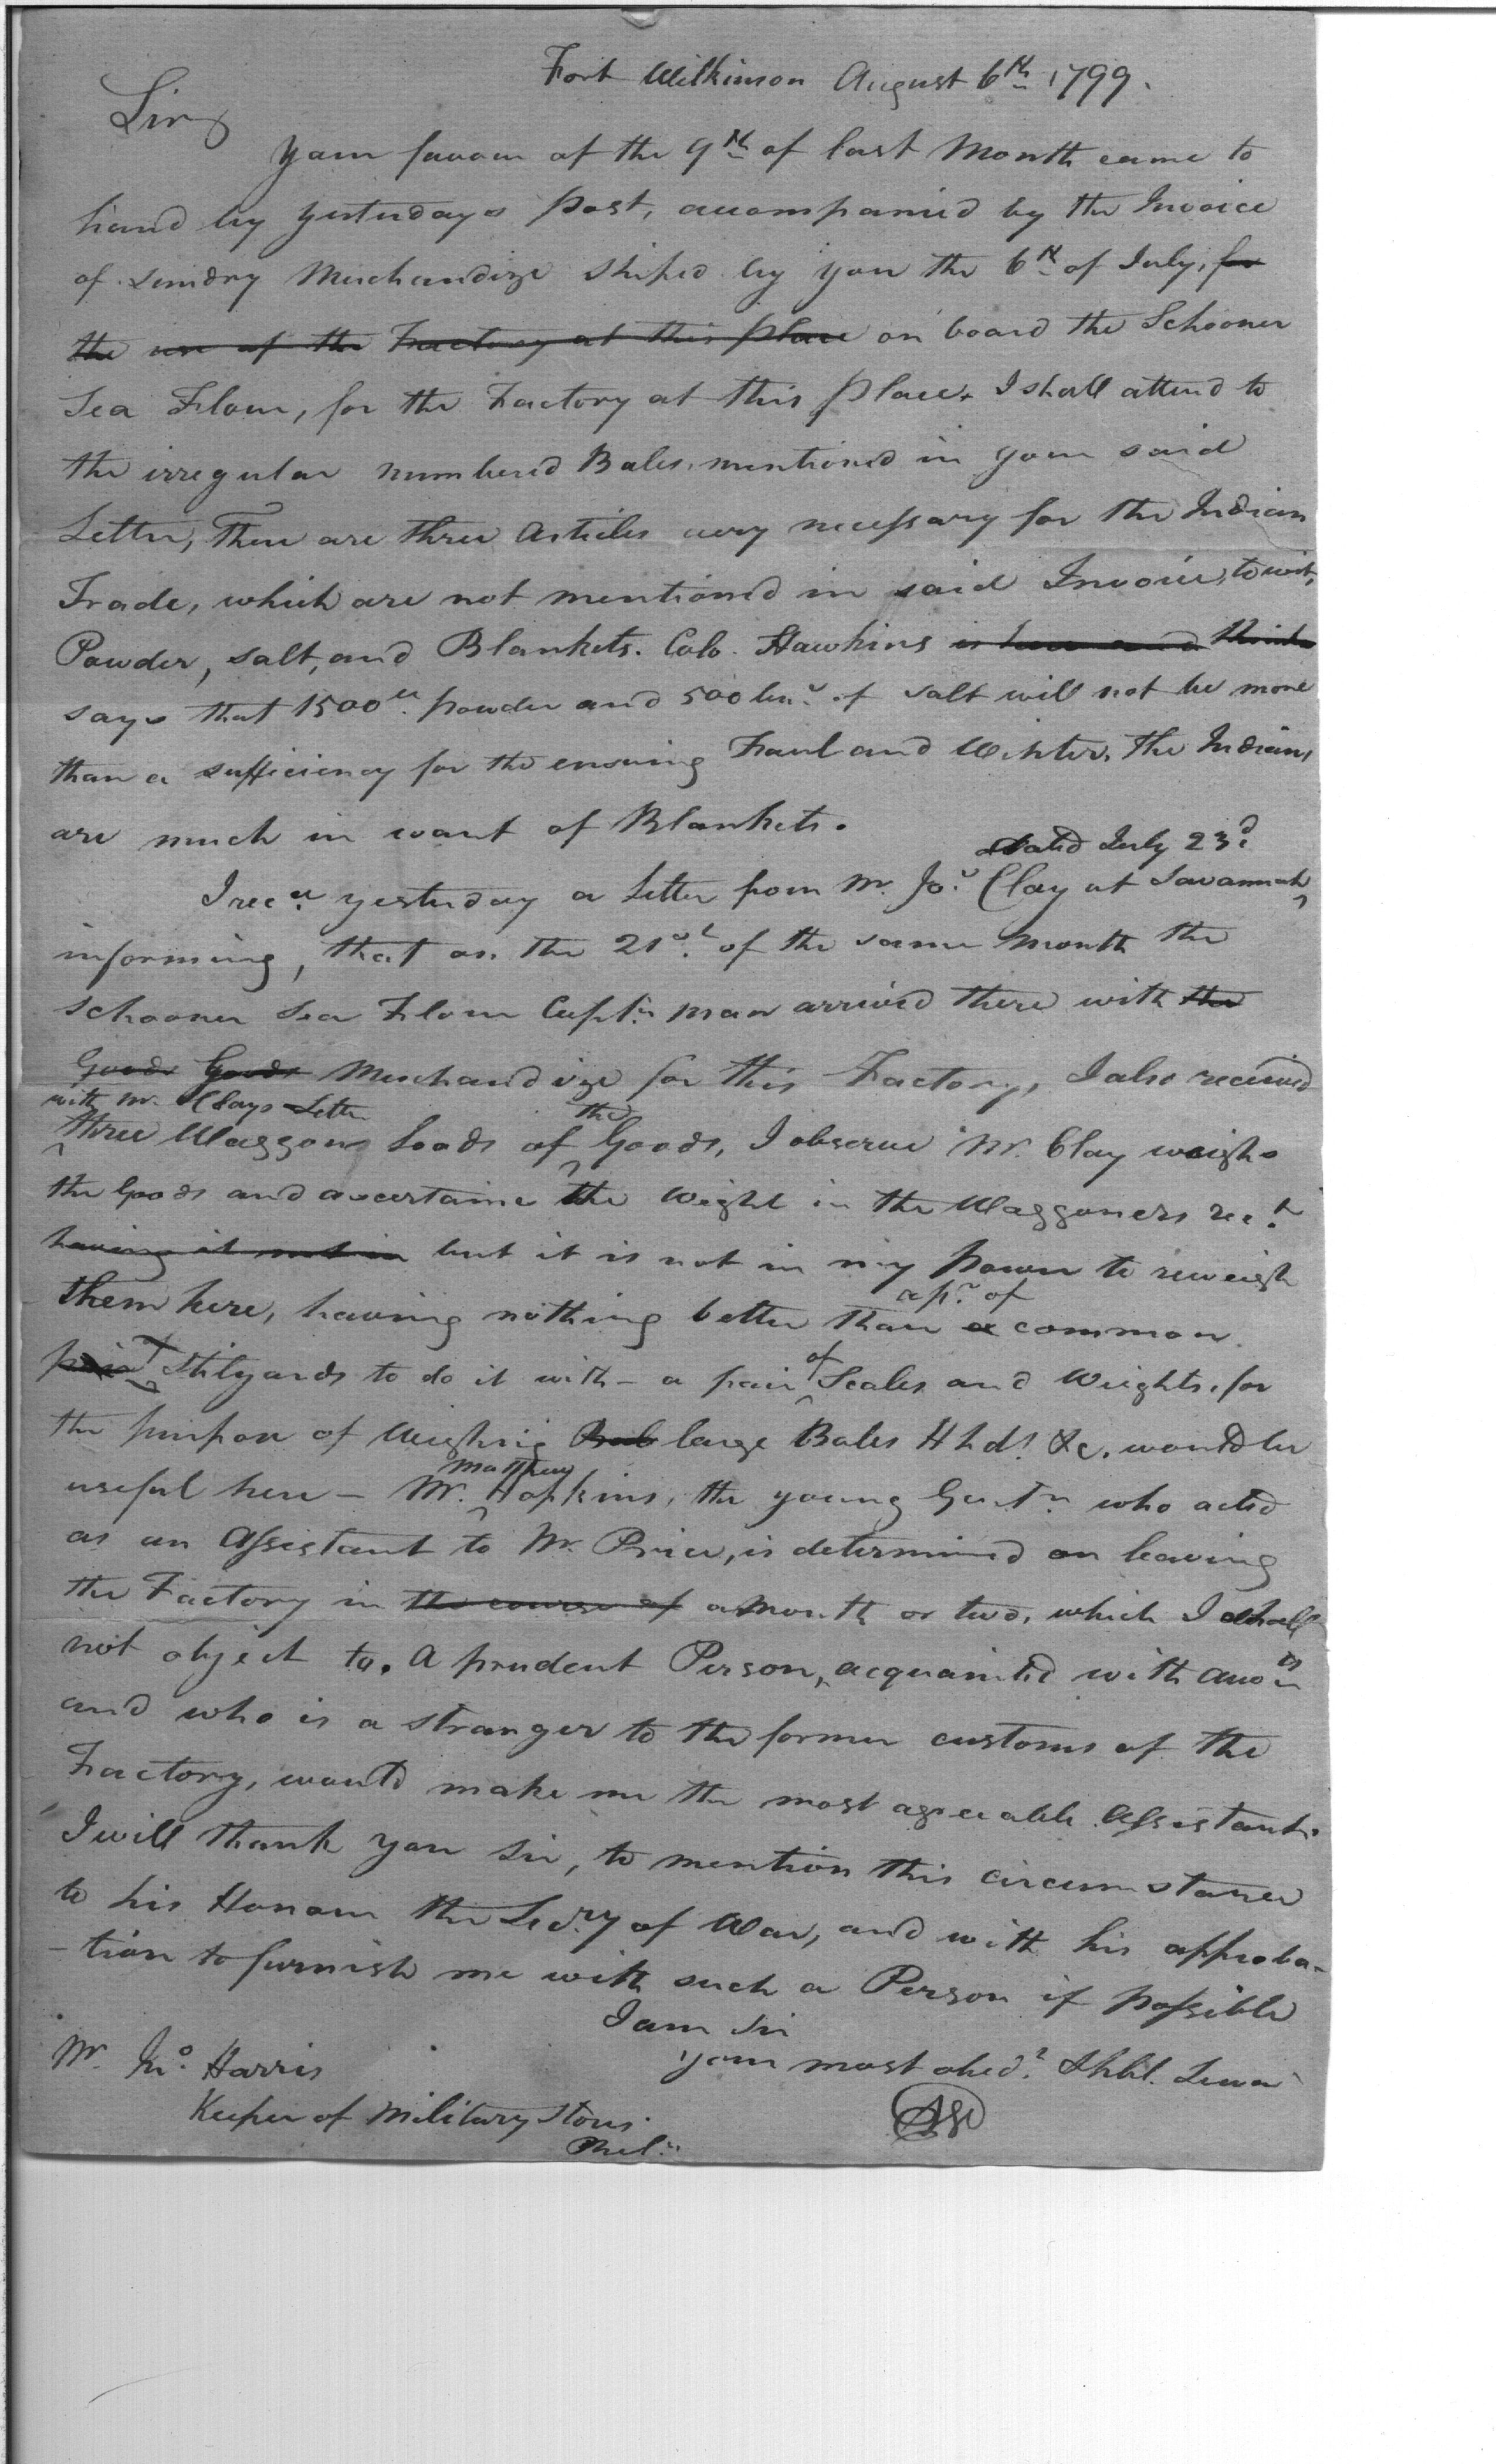 Fort Wilkinson August 6th 1799.
Sir
Your favour of the 9th of last Month came to
hand by yesterdays post, accompanied by the Invoice
of sundry Merchandize shiped by you the 6th of July, for
the use of the Factory at this place on board the Schooner
Sea Flour, for the Factory at this place. I shall attend to
the irregular numbered Bales, mentioned in your said
Letter, There are three Articles very necessary for the Indian
Trade, which are not mentioned in said Invoice, to wit,
Powder, salt, and Blankets. Colo. Hawkins is here and thinks
says that 1500 powder and 500 bus. of salt will not be more
than a sufficiency for the ensuing Faul and Winter. The Indians
are much in want of Blankets.
dated July 23d
I recd. yesterday a Letter from Mr. Jos. Clay at Savannah
informing, that on the 21st. of the same month the
schooner Sea Flour Captn. Man arrived there with the
Goods Goods Merchandize for this Factory, I also received
with Mr. Clays Letter the
three Waggons Loads of Goods, I observe Mr. Clay weighs
the Goods and ascertains the Weight in the Waggoners rect.
having it not in but it is not in my power to reweigh
a pr. of
them here, having nothing better than a common
pair Stilyards to do it with - a pair of Scales and Weights, for
the purpose of weighing Bal large Bales Hhds. &c. would be
Matthew
useful here - Mr. Hopkins, the young Gentn. who acted
as an Assistant to Mr. Price, is determined on leaving
the Factory in the course of a Month or two, which I shall
not object to. A prudent Person, acquainted with accots
and who is a stranger to the former customs of the
Factory, would make me the most agreeable Assistant.
I will thank you Sir, to mention this circumstance
to his Honour the Secry of War, and with his approba-
-tion to furnish me with such a Person if possible
I am Sir
Your most obedt. Hhbl. Serva
Mr. Jno. Harris
Keeper of Military Stores.
Phila.